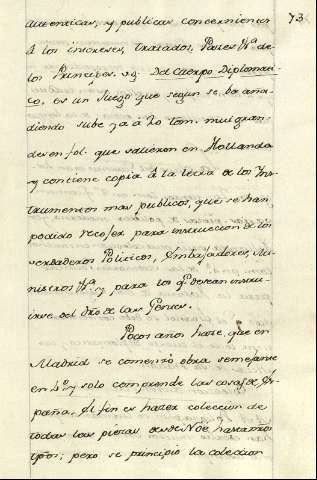 73
autenticas, y publicas concernientes
à los intereses, tratados, Pazes &a de
los Principes. vg. Del Cuerpo Diplomati
co, es un Juego que segun se ba aña
diendo sube ya à 20 tom. mui gran
des en fol. que salieron en Hollanda
y contiene copia à la letra de los Ins
trumentos mas publicos, que se han
podido recojer para instruccion de los
verdaderos Politicos, Embajadores, Mi
nistros &a. y para los q.e desean instru
irse del Dro de las Gentes.
Pocos años hace, que en
Madrid se comenzó obra semejante
en 4.o y solo comprende las cosas de Es
paña, El fin es hazer coleccion de
todas las piezas desde Noé hasta nros
tpos; pero se principio la coleccion